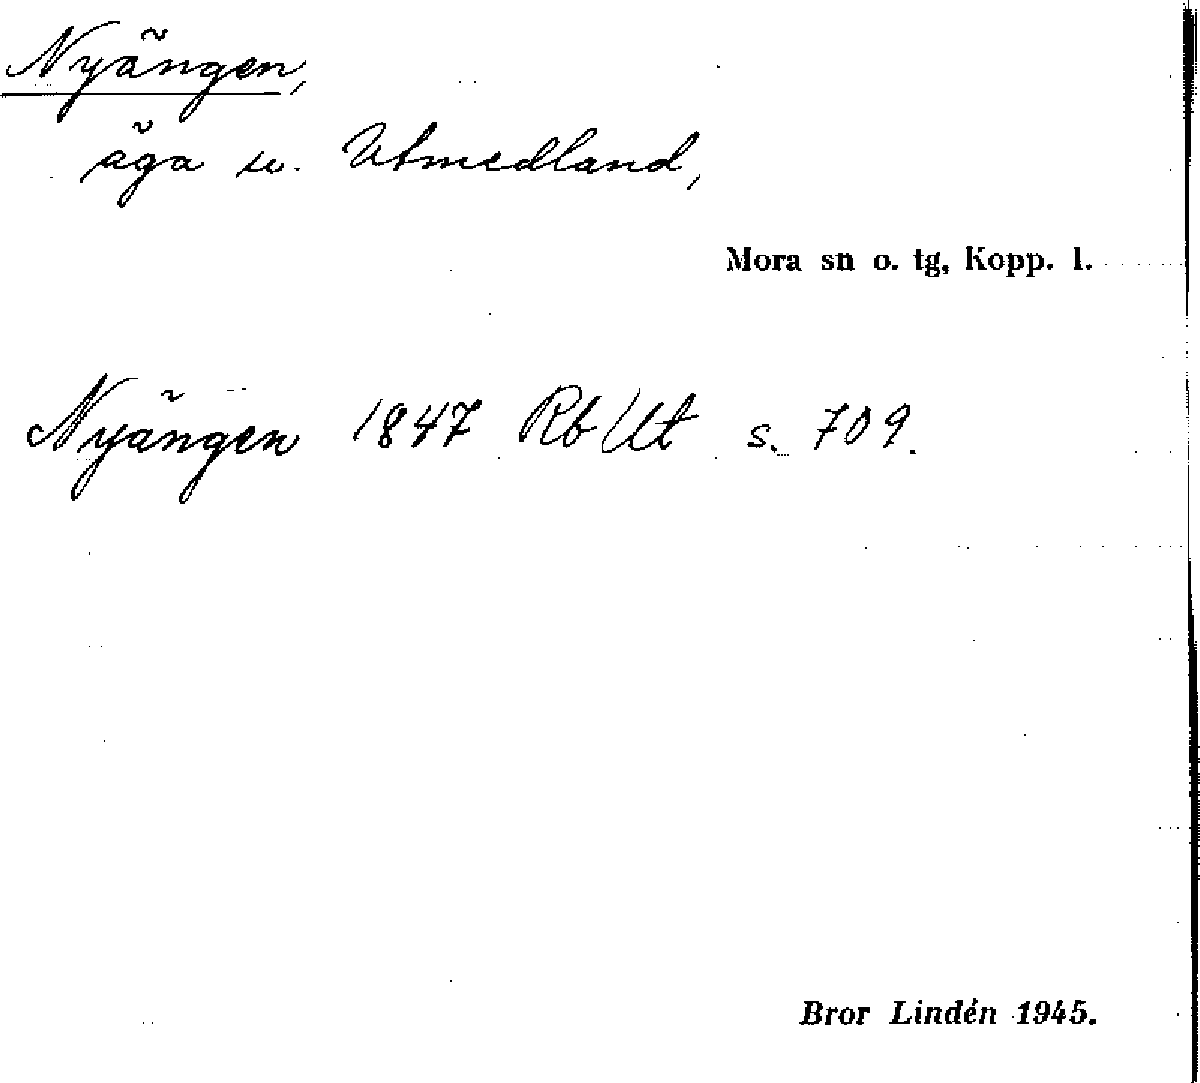 Nyängen,
äga Utmedland,
Mora sn o. tg, Kopp. l.
Nyängen 1847 Rb Ut s. 709.
Bror Lindén 1945.